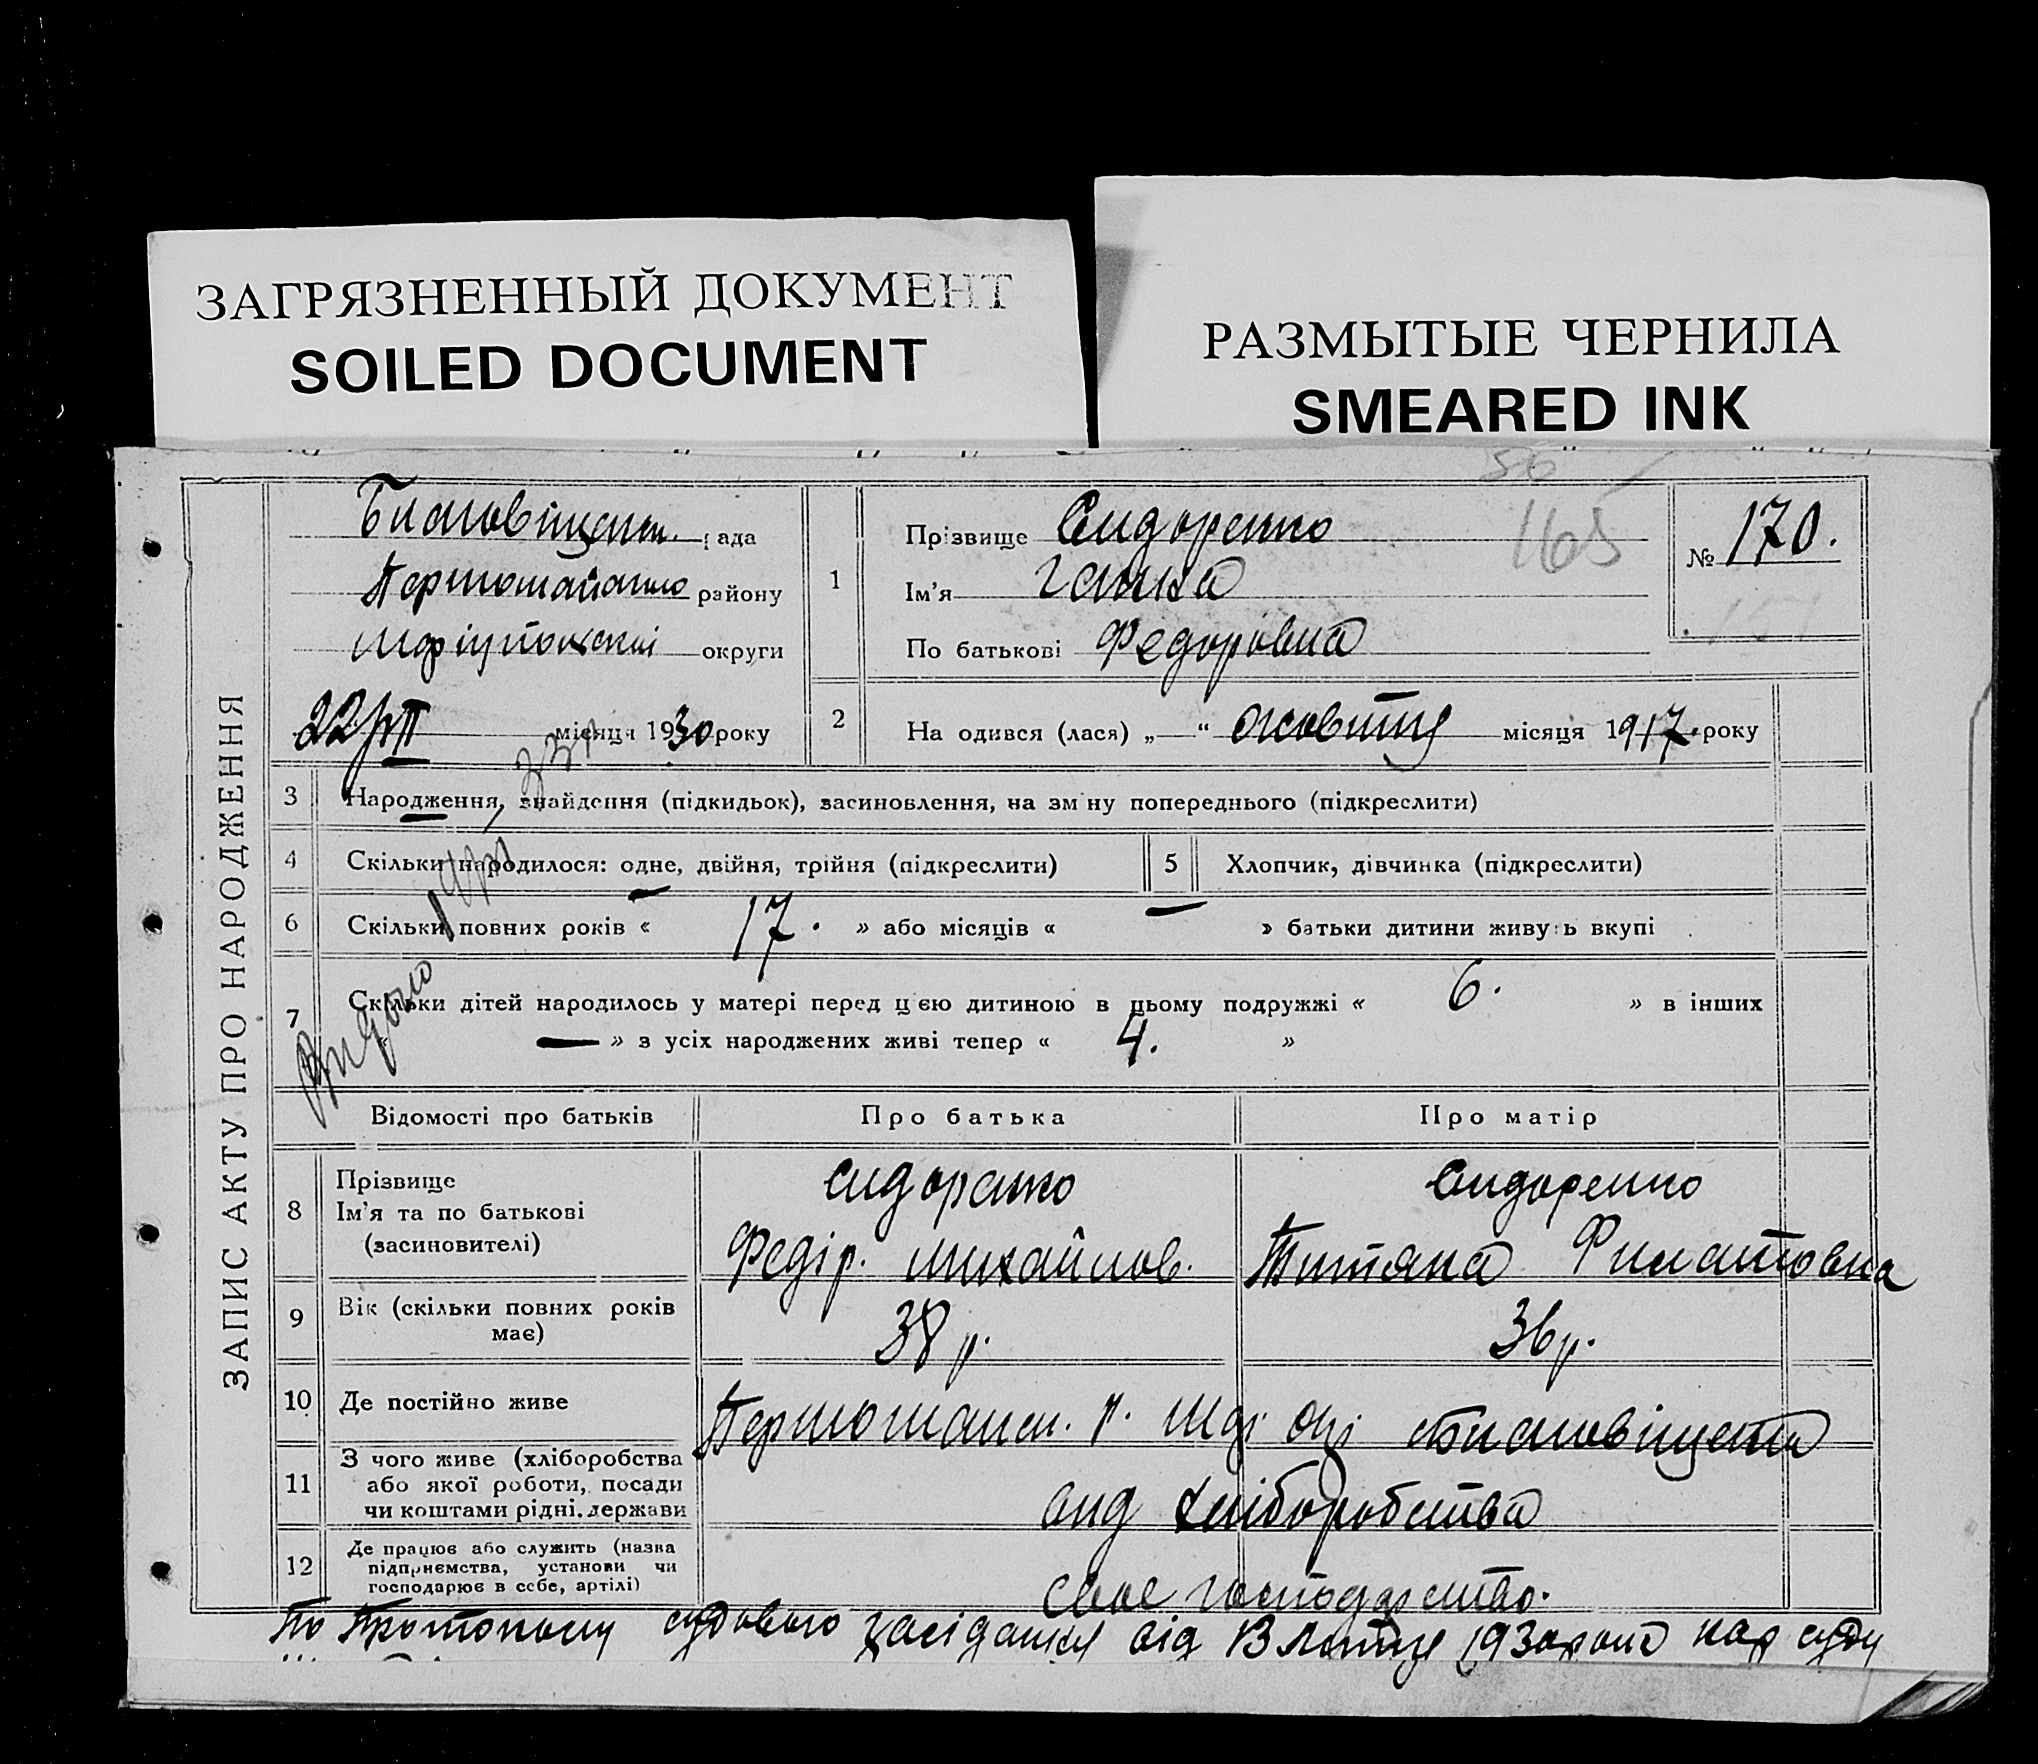 ЗАГРЯЗНЕННЫЙ ДОКУМЕНТ
SOILED DOCUMENT
РАЗМЫТЫЕ ЧЕРНИЛА
SMEARED INK
56
165
ЗАПИС АКТУ ПРО НАРОДЖЕННЯ
Благовіщенс. рада
Першомайского району
округи
22/VII місяця 1930 року
1
Прізвище Сидоренко
Ім'я Ганна
По батькові Федоровна
№ 170.
2 На одився (лася) „ — “ жовтня місяця 1917. року
3 Народження, знайдення (підкидьок), засиновлення, на зм ну попереднього (підкреслити)
4 Скільки народилося: одне, двійня, трійня (підкреслити)
5 Хлопчик, дівчинка (підкреслити)
6 Скільки повних років « 17. » або місяців « » батьки дитини живуть вкупі
7 Скільки дітей народилось у матері перед цією дитиною в цьому подружжі « 6. » в інших
« — » з усіх народжених живі тепер « 4. »
Відомості про батьків Про батька Про матір
8 Прізвище
Ім'я та по батькові
(засиновителі)
Сидоренко
Федір. Михайлов.
Сидоренко
Титяна Филатовна
9 Вік (скільки повних років
має)
38 р.
36 р.
10 Де постійно живе
Першомайск. р. Благовіщенка
11 З чого живе (хліборобства
або якої роботи, посади
чи коштами рідні. держави
від хліборобства
12 Де працює або служить (назва
підприємства, установи чи
господарює в себе, артілі)
своє господарство.
По Протоколу судового засідання від 13 Лютця 1930 рока нар суду